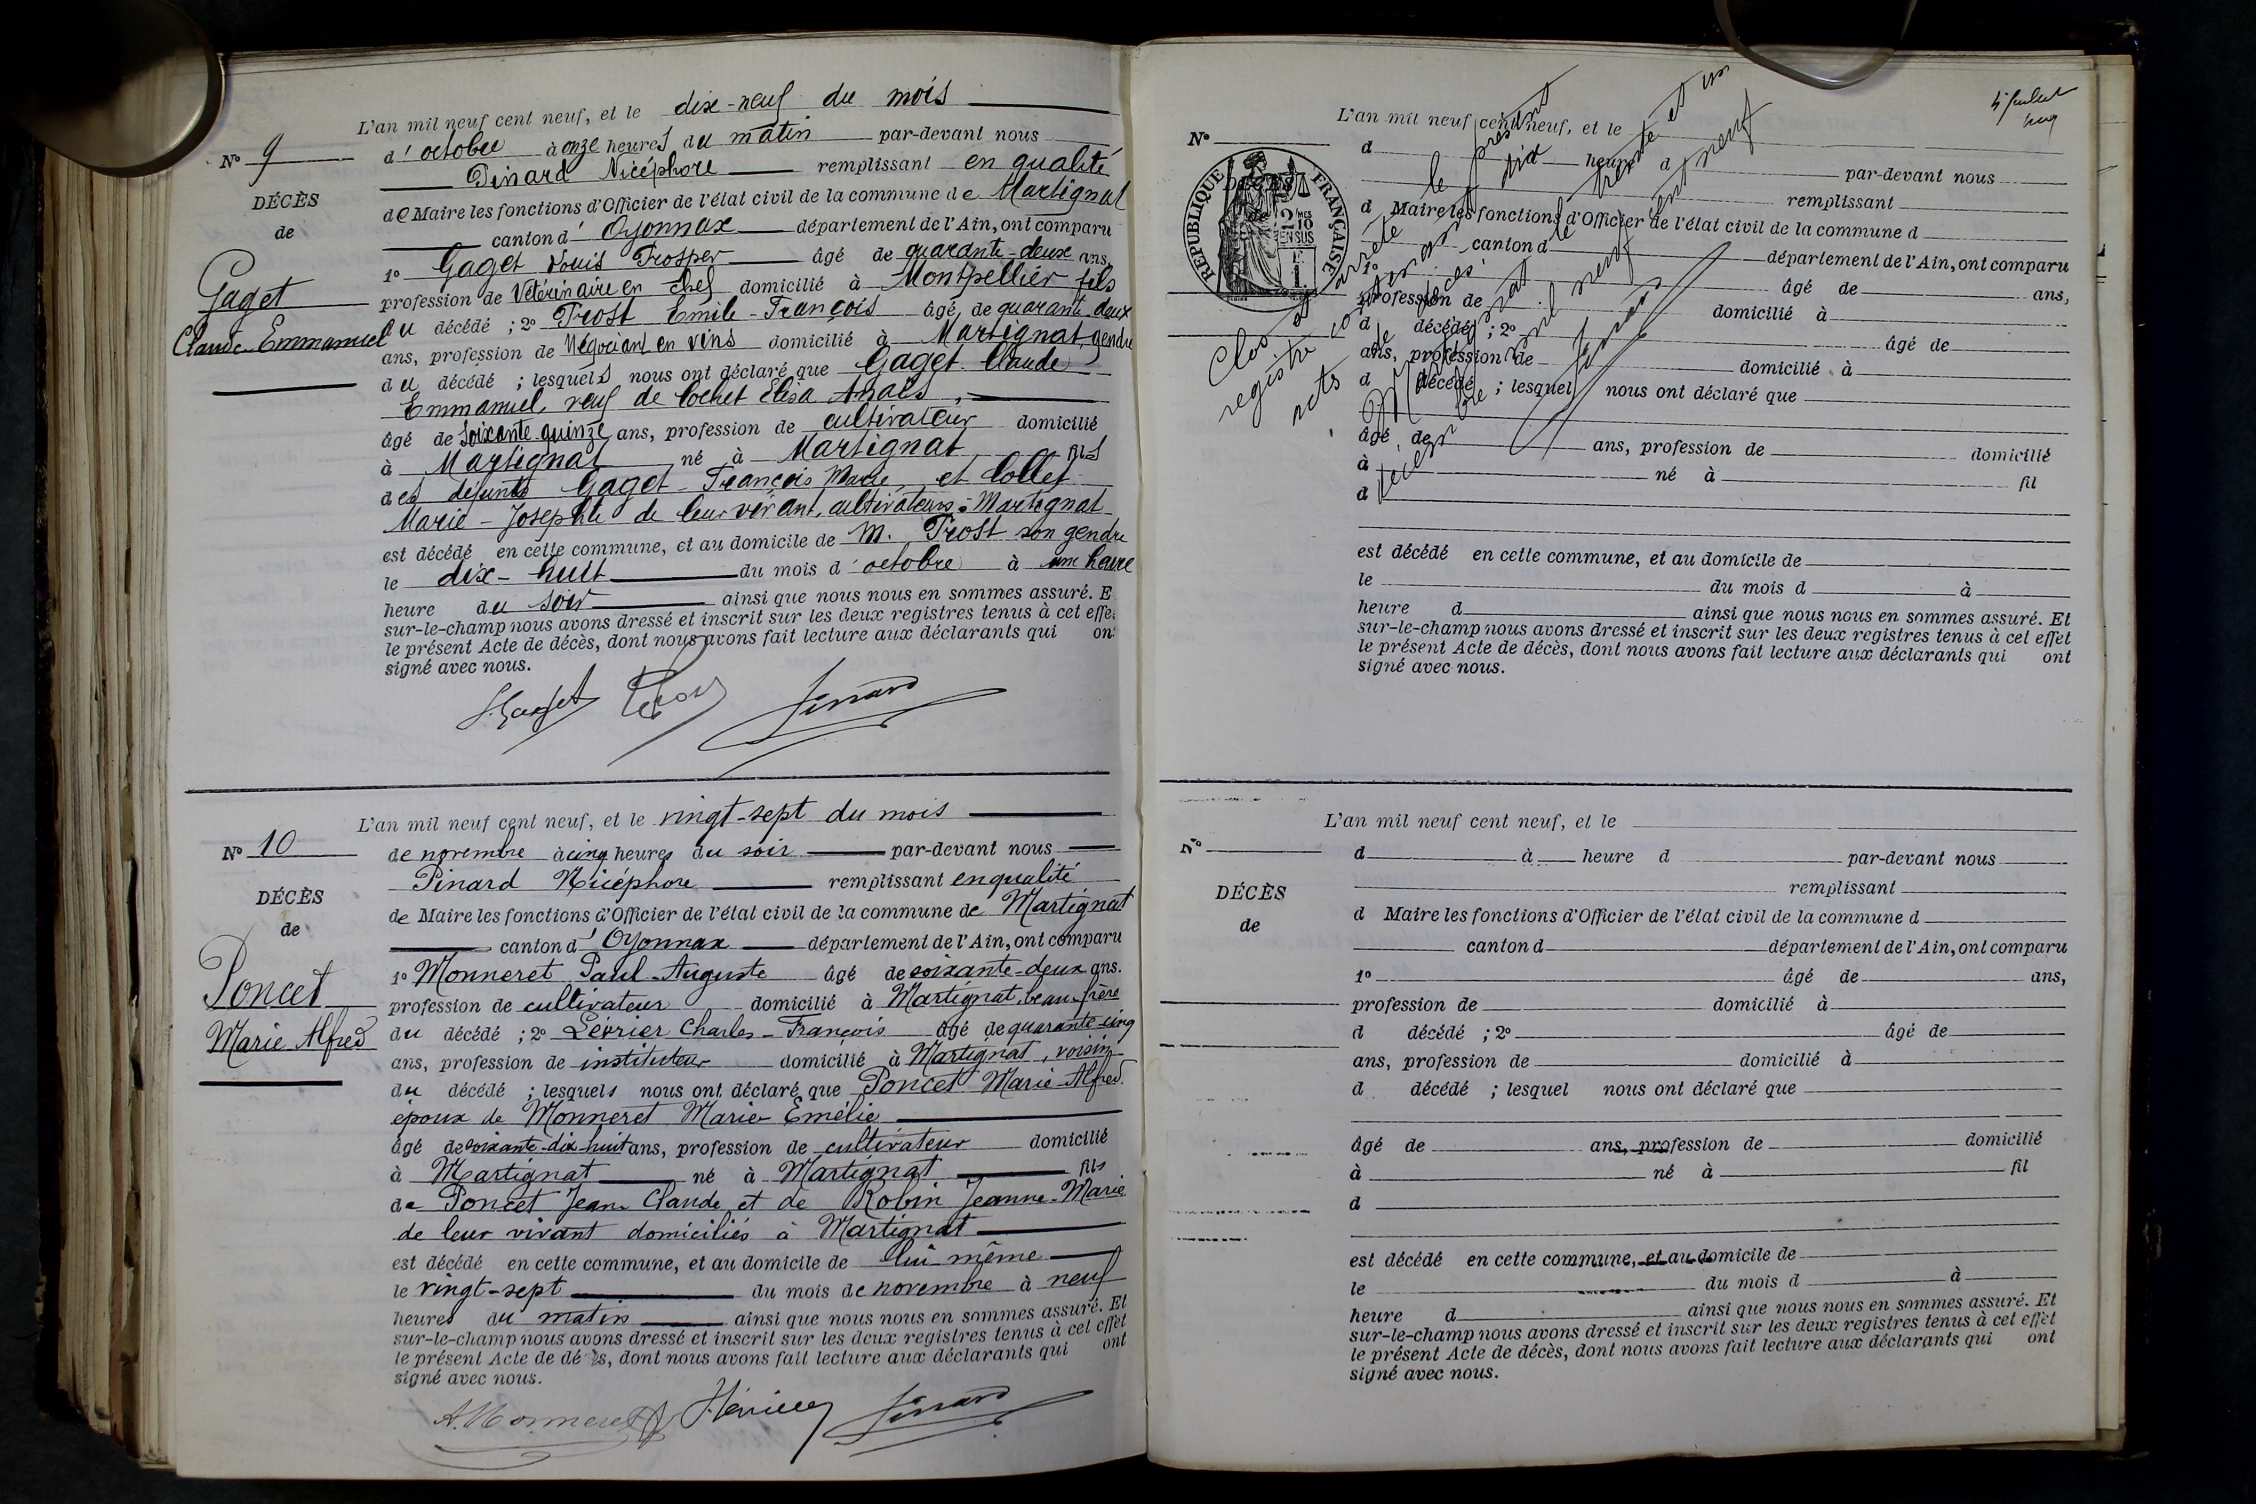 L'an mil neuf cent neuf, et le dix-neuf du mois
N° 9
d'octobre à onze heures du matin par-devant nous
Pinard Nicéphore remplissant en qualité
DÉCÈS
de Maire les fonctions d'Officier de l'état civil de la commune de Martignat
de
canton d'Oyonnax département de l'Ain, ont comparu
1° Gaget Louis Prosper âgé de quarante-deux ans,
Gaget
profession de Vétérinaire en chef domicilié à Montpellier fils
Claude-Emmanuel
du décédé ; 2° Prost Emile-François âgé de quarante deux
ans, profession de Négociant en vins domicilié à Martignat, gendre
du décédé ; lesquels nous ont déclaré que Gaget Claude
Emmanuel, veuf de Cochet Elisa Anaïs,
âgé de soixante-quinze ans, profession de cultivateur domicilié
à Martignat né à Martignat fils
des défunts Gaget François Marie, et Collet
Marie-Josephte de leur vivant, cultivateurs à Martignat
est décédé en cette commune, et au domicile de M. Prost son gendre
le dix-huit du mois d'octobre à une heure
heure du soir ainsi que nous nous en sommes assuré. E
sur-le-champ nous avons dressé et inscrit sur les deux registres tenus à cet effe
le présent Acte de décès, dont nous avons fait lecture aux déclarants qui on
signé avec nous.
L. Gaget Prost Pinard
L'an mil neuf cent neuf, et le vingt-sept du mois
N° 10
de novembre à cinq heures du soir par-devant nous
Pinard Nicéphore remplissant en qualité
DÉCÈS
de Maire les fonctions d'Officier de l'état civil de la commune de Martignat
de
canton d'Oyonnax département de l'Ain, ont comparu
1° Monneret Paul-Auguste âgé de soixante-deux ans.
Poncet
profession de cultivateur domicilié à Martignat, beau-frère
Marie Alfred
du décédé ; 2° Lévrier Charles-François âgé de quarante-cinq
ans, profession de instituteur domicilié à Martignat, voisin
du décédé ; lesquels nous ont déclaré que Poncet Marie-Alfred
époux de Monneret Marie Emélie
âgé de soixante-dix-huit ans, profession de cultivateur domicilié
à Martignat né à Martignat fils
de Poncet Jean Claude et de Robin Jeanne-Marie
de leur vivant domiciliés à Martignat
est décédé en cette commune, et au domicile de lui-même
le vingt-sept du mois de novembre à neuf
heures du matin ainsi que nous nous en sommes assuré. Et
sur-le-champ nous avons dressé et inscrit sur les deux registres tenus à cet effet
le présent Acte de décès, dont nous avons fait lecture aux déclarants qui ont
signé avec nous.
A. Monneret Pinard
L'an mil neuf cent neuf, et le
N°
d heure d par-devant nous
remplissant
RÉPUBLIQUE FRANÇAISE
d Maire les fonctions d'Officier de l'état civil de la commune d
canton d département de l'Ain, ont comparu
1° âgé de ans,
profession de domicilié à
d décédé ; 2° âgé de
ans, profession de domicilié à
d décédé ; lesquel nous ont déclaré que
âgé de ans, profession de domicilié
à né à fil
d
Clos et arrêté le présent
registre
actes de décès
Martignat le trente et un
décembre mil neuf cent neuf
Pinard
est décédé en cette commune, et au domicile de
le du mois d à
heure d ainsi que nous nous en sommes assuré. Et
sur-le-champ nous avons dressé et inscrit sur les deux registres tenus à cet effet
le présent Acte de décès, dont nous avons fait lecture aux déclarants qui ont
signé avec nous.
L'an mil neuf cent neuf, et le
N°
d à heure d par-devant nous
remplissant
DÉCÈS
d Maire les fonctions d'Officier de l'état civil de la commune d
de
canton d département de l'Ain, ont comparu
1° âgé de ans,
profession de domicilié à
d décédé ; 2° âgé de
ans, profession de domicilié à
d décédé ; lesquel nous ont déclaré que
âgé de ans, profession de domicilié
à né à fil
d
est décédé en cette commune, et au domicile de
le du mois d à
heure d ainsi que nous nous en sommes assuré. Et
sur-le-champ nous avons dressé et inscrit sur les deux registres tenus à cet effet
le présent Acte de décès, dont nous avons fait lecture aux déclarants qui ont
signé avec nous.